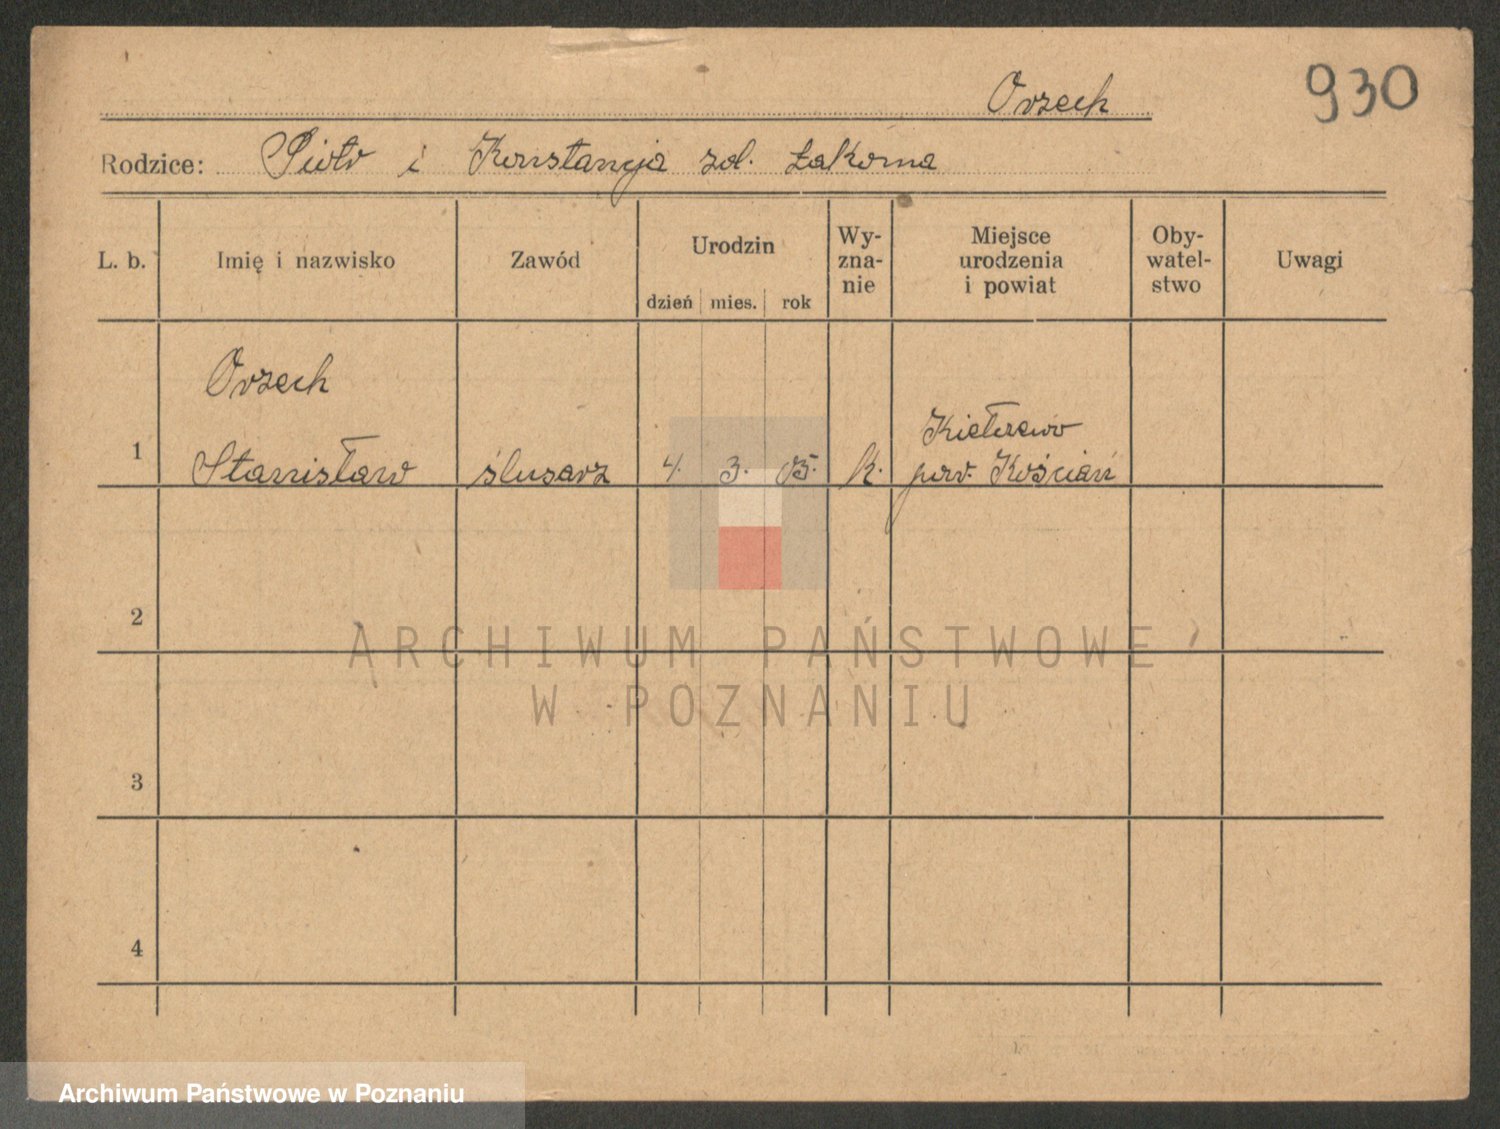 Orzech
930
Rodzice: Piotr i Konstancja zd. Łakoma
L. b.
Imię i nazwisko
Zawód
Urodzin
dzień mies. rok
Wy-
zna-
nie
Miejsce
urodzenia
i powiat
Oby-
watel-
stwo
Uwagi
Orzech
1 Stanisław ślusarz 4. 3. 05. k. Kiełczewo
pow. Kościan
2
3
4
ARCHIWUM PAŃSTWOWE
W POZNANIU
Archiwum Państwowe w Poznaniu